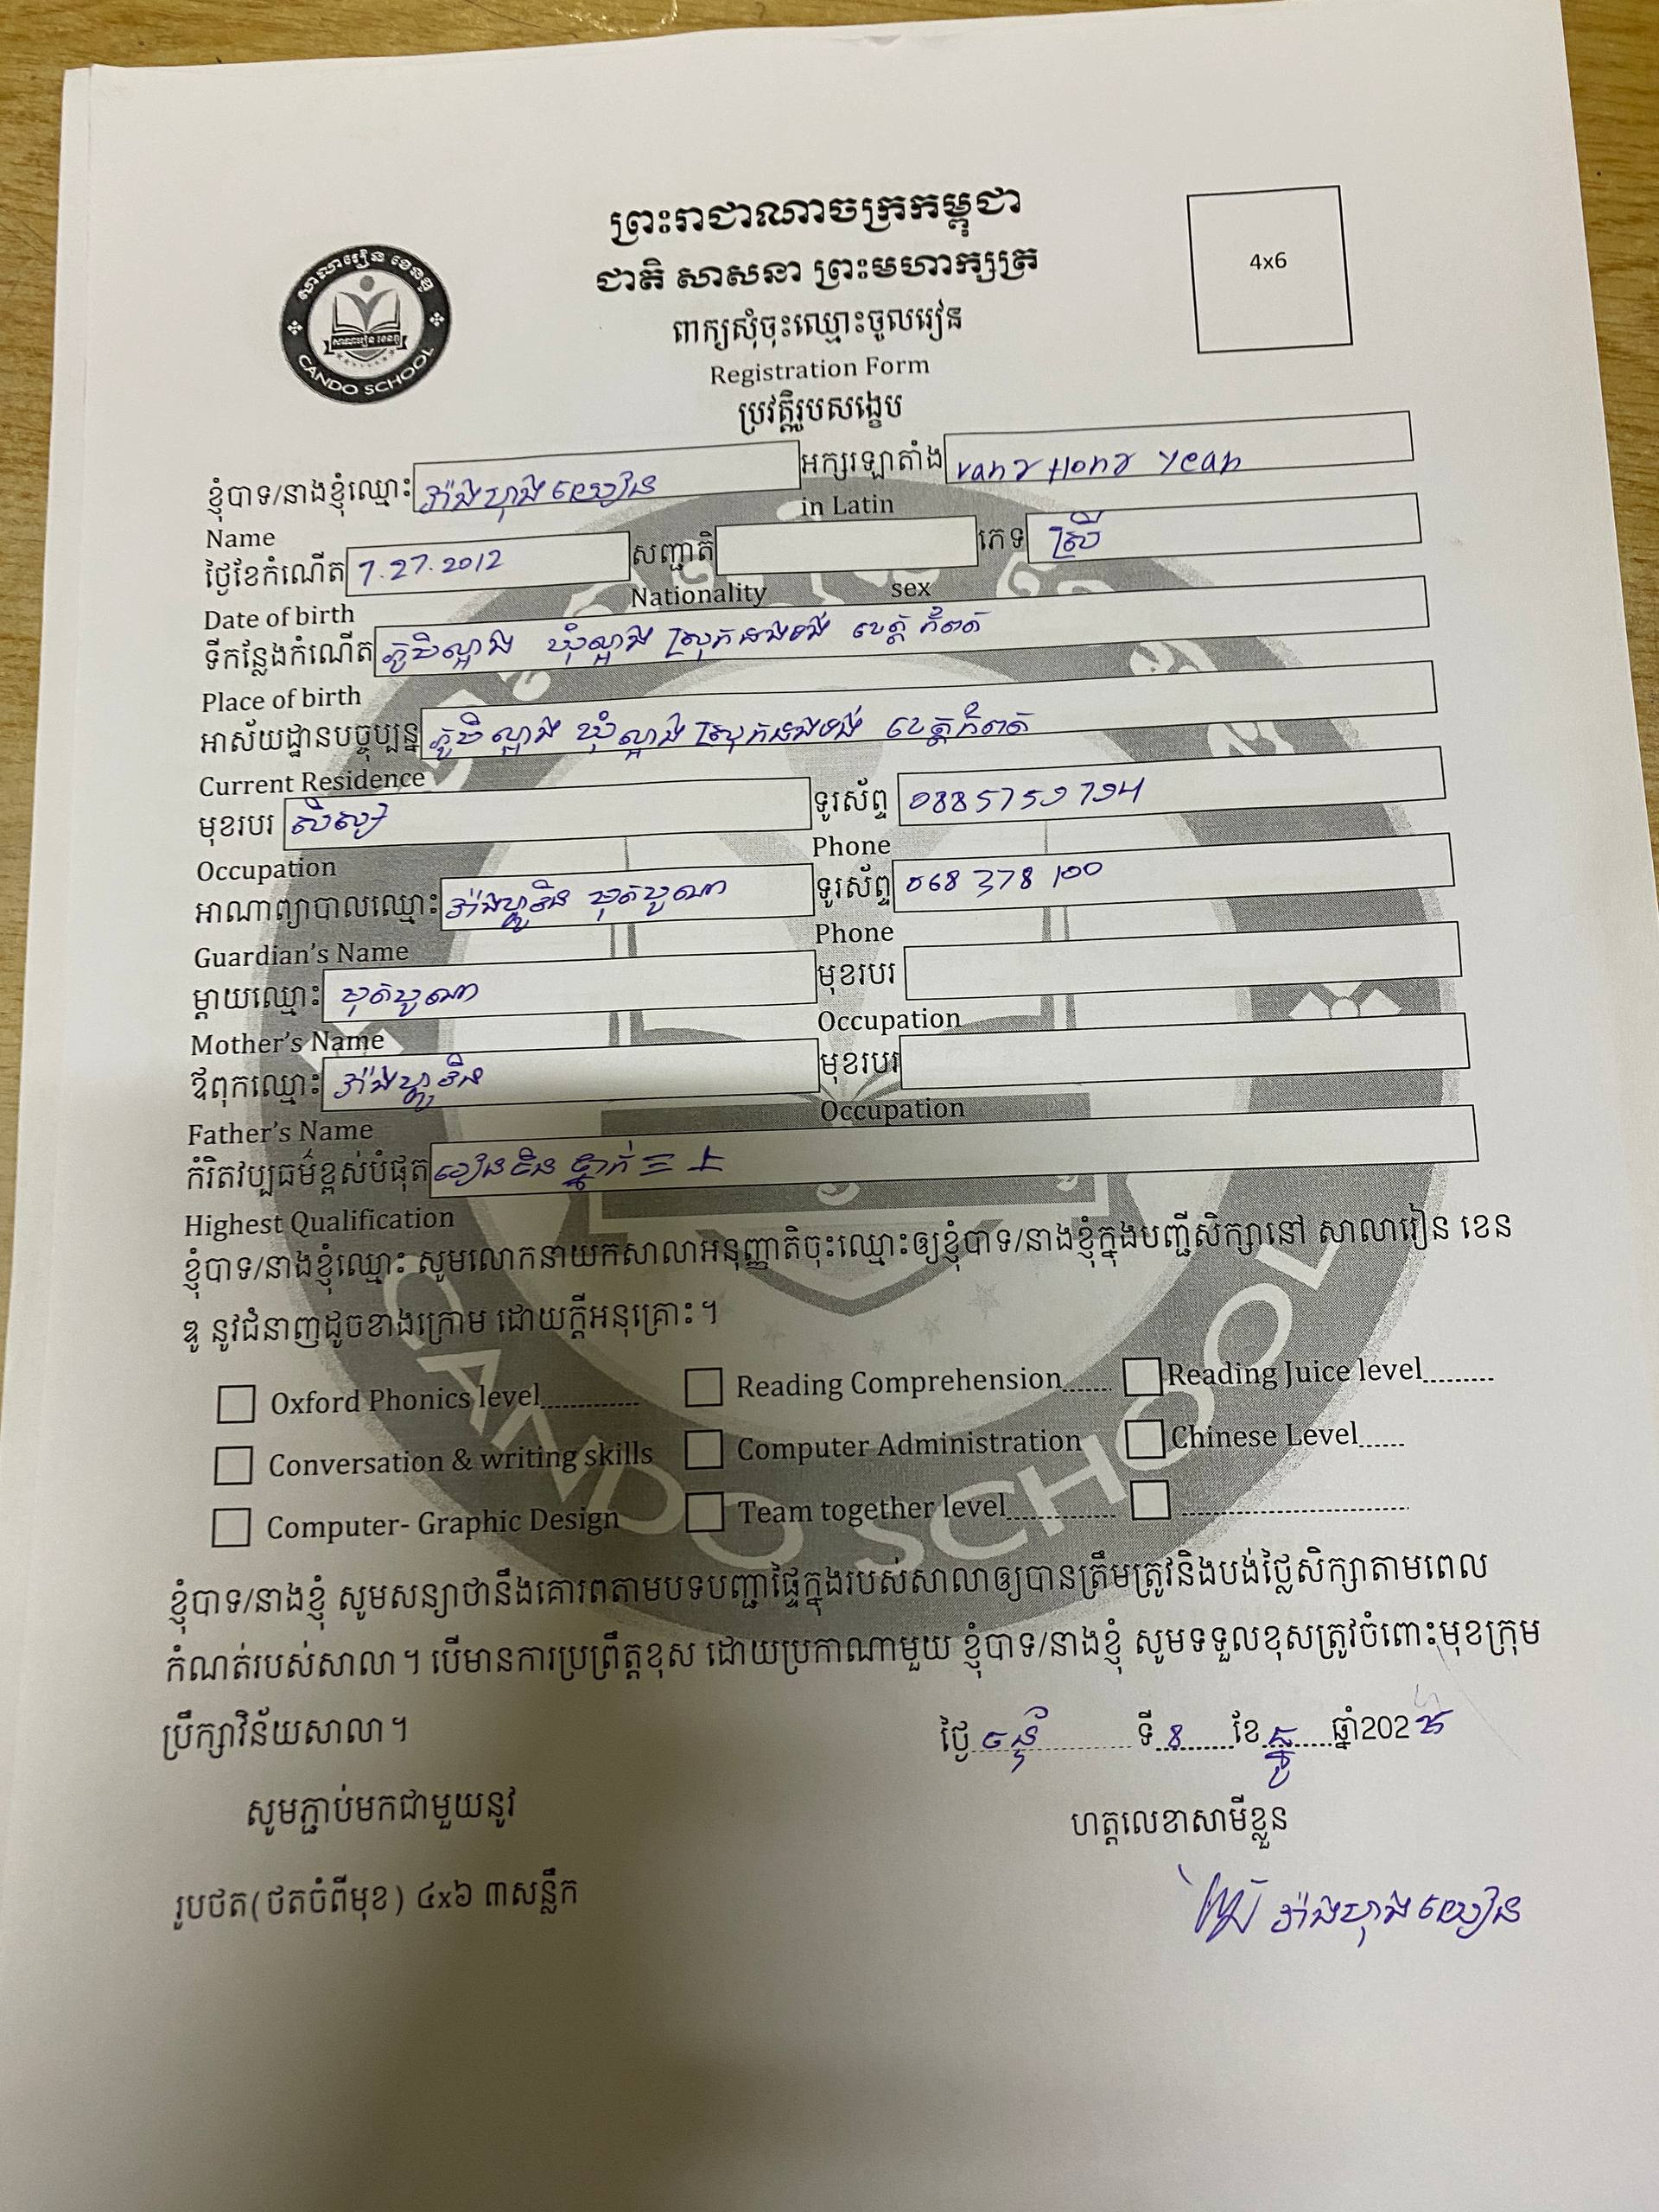 ព្រះរាជាណាចក្រកម្ពុជា
ជាតិ សាសនា ព្រះមហាក្សត្រ
សាលារៀន ខេនឌូ
CANDO SCHOOL
4x6
ពាក្យសុំចុះឈ្មោះចូលរៀន
Registration Form
ប្រវត្តិរូបសង្ខេប
ខ្ញុំបាទ/នាងខ្ញុំឈ្មោះ វ៉ាងហុងយៀន អក្សរឡាតាំង Vang Hong Yean
Name in Latin
ថ្ងៃខែកំណើត 7.27.2012 សញ្ជាតិ ភេទ ស្រី
Date of birth Nationality sex
ទីកន្លែងកំណើត ភូមិល្អាង ឃុំល្អាង ស្រុកដងទង់ ខេត្តកំពត
Place of birth
អាស័យដ្ឋានបច្ចុប្បន្ន ភូមិល្អាង ឃុំល្អាង ស្រុកដងទង់ ខេត្តកំពត
Current Residence
មុខរបរ សិស្ស ទូរស័ព្ទ
Occupation Phone
អាណាព្យាបាលឈ្មោះ ទូរស័ព្ទ 068 378 100
Guardian's Name Phone
ម្ដាយឈ្មោះ មុខរបរ
Mother's Name Occupation
ឪពុកឈ្មោះ មុខរបរ
Father's Name Occupation
កំរិតវប្បធម៌ខ្ពស់បំផុត រៀនចិន ថ្នាក់ 三上
Highest Qualification
ខ្ញុំបាទ/នាងខ្ញុំឈ្មោះ សូមលោកនាយកសាលាអនុញ្ញាតិចុះឈ្មោះឲ្យខ្ញុំបាទ/នាងខ្ញុំក្នុងបញ្ជីសិក្សានៅ សាលារៀន ខេន
ឌូ នូវជំនាញដូចខាងក្រោម ដោយក្ដីអនុគ្រោះ ។
Oxford Phonics level............. Reading Comprehension....... Reading Juice level.........
Conversation & writing skills Computer Administration Chinese Level......
Computer- Graphic Design Team together level............... .............................
ខ្ញុំបាទ/នាងខ្ញុំ សូមសន្យាថានឹងគោរពតាមបទបញ្ជាផ្ទៃក្នុងរបស់សាលាឲ្យបានត្រឹមត្រូវនិងបង់ថ្លៃសិក្សាតាមពេល
កំណត់របស់សាលា ។ បើមានការប្រព្រឹត្តខុស ដោយប្រកាណាមួយ ខ្ញុំបាទ/នាងខ្ញុំ សូមទទួលខុសត្រូវចំពោះមុខក្រុម
ប្រឹក្សាវិន័យសាលា ។
ថ្ងៃ ចន្ទ ទី 8 ខែ ធ្នូ ឆ្នាំ202
សូមភ្ជាប់មកជាមួយនូវ
ហត្ថលេខាសាមីខ្លួន
រូបថត(ថតចំពីមុខ) ៤x៦ ៣សន្លឹក
វ៉ាងហុងយៀន